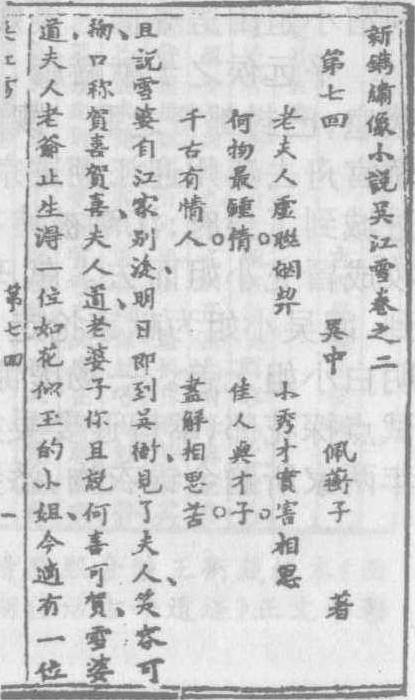 新鐫繡像小說吳江雪卷之二
第七回　　吳中　佩蘅子　著
老夫人虛聯姻契　小秀才實害相思
何物最鍾情。佳人與才子。
千古有情人、盡解相思苦
且說雪婆自江家別後、明日即到吳衙、見了夫人、笑容可
掬、口称賀喜賀喜、夫人道、老婆子你且說何喜可賀、雪婆
道、夫人老爺止生得一位如花似玉的小姐、今適有一位
吳江雪　第七回　一